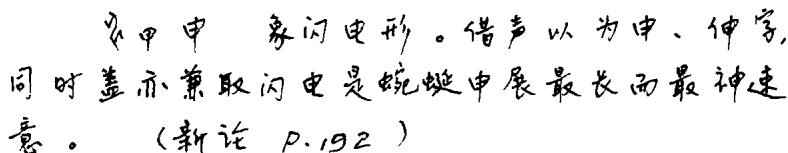 甲申 象闪电形。借声以为申、伸字,
同时盖亦兼取闪电是蜿蜒申展最长而最神速
意。 (新论 p.192)